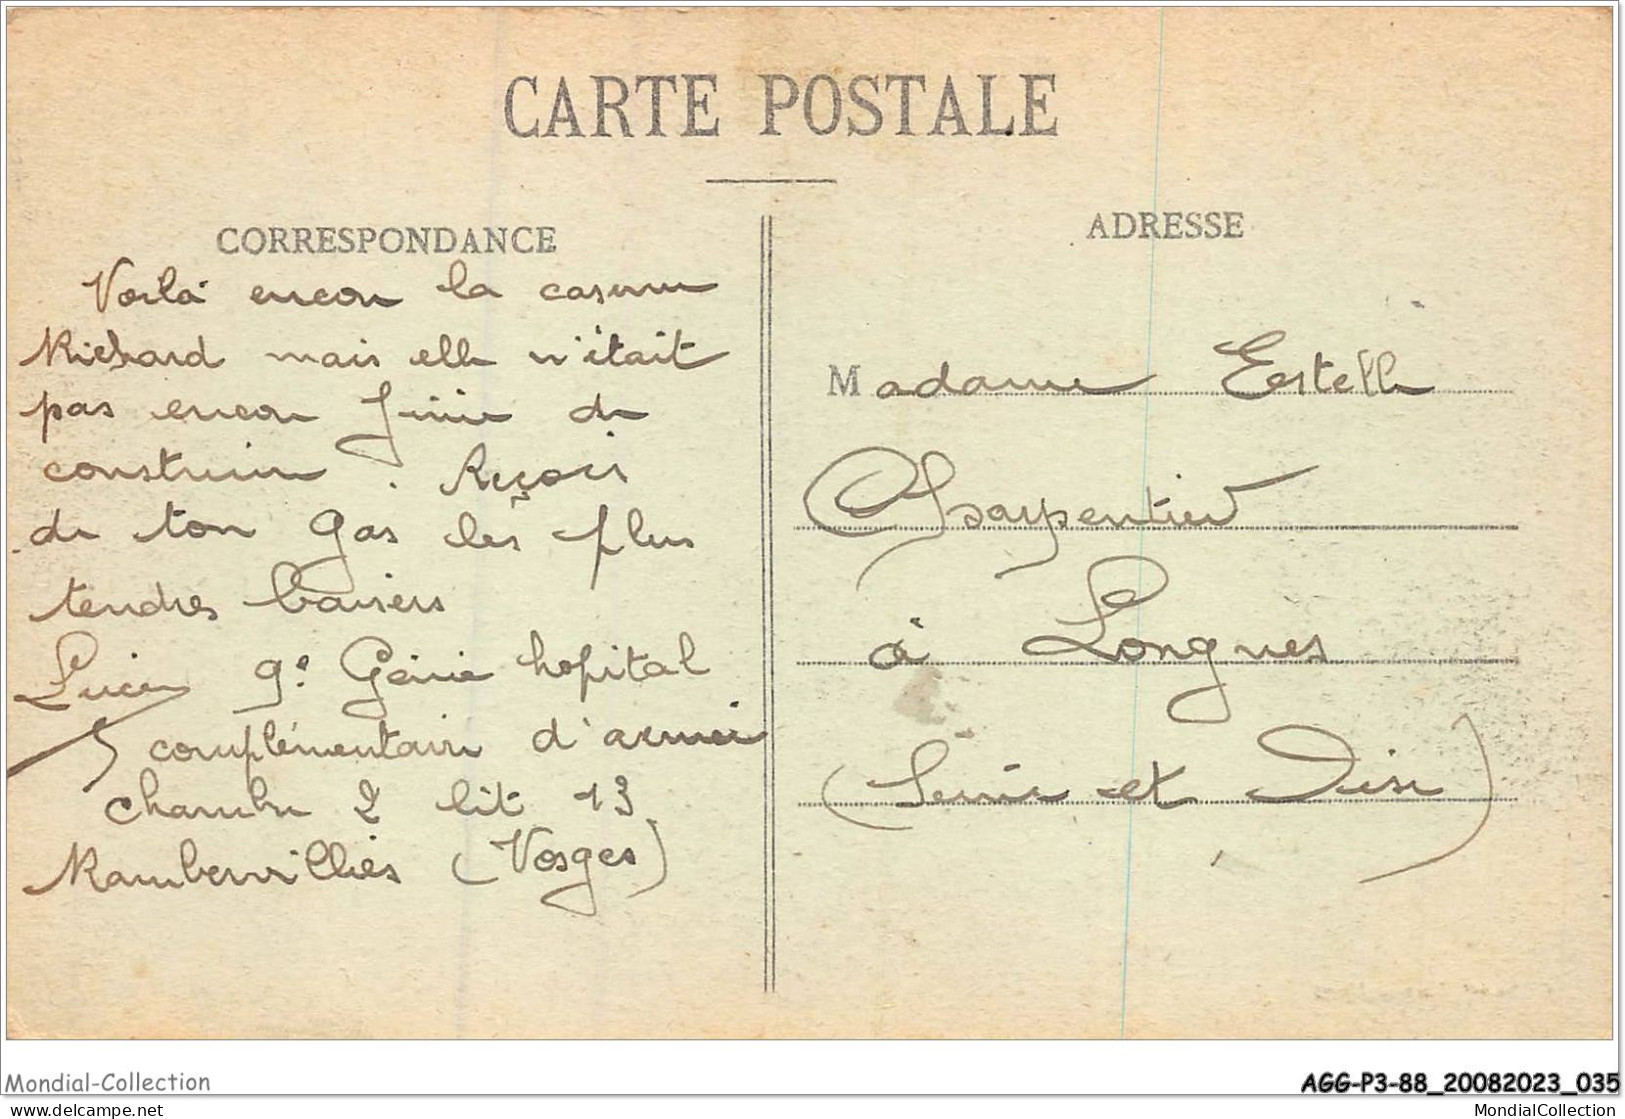 CARTE POSTALE
CORRESPONDANCE
Voilà encore la caserne
Richard mais elle n'était
pas encore finie de
construire. Reçois
de ton gas les plus
tendres baisers
Lucien 9e Génie hopital
complémentaire d'armée
chambre 2 lit 13
Rambervillies (Vosges)
ADRESSE
Madame Estelle
Charpentier
à Longnes
(Seine et Oise)
Mondial-Collection
AGG-P3-88_20082023_035
www.delcampe.net
MondialCollection